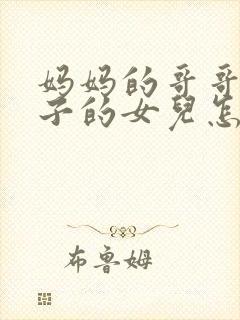 妈妈的哥哥
子的女兒怎
布鲁姆